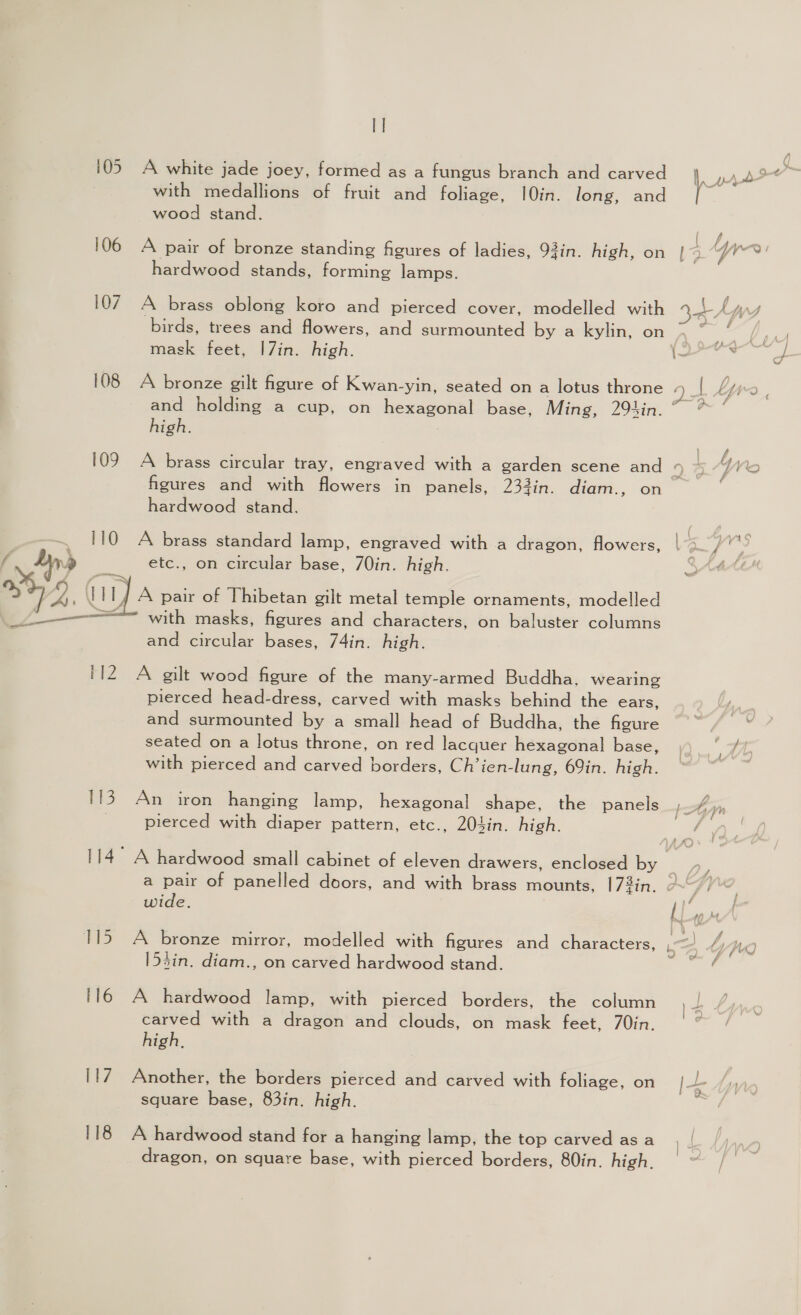 11
105 A white jade joey, formed as a fungus branch and carved
with medallions of fruit and foliage, 10in. long, and
wood stand.
106 A pair of bronze standing figures of ladies, 9¾in. high, on
hardwood stands, forming lamps.
107 A brass oblong koro and pierced cover, modelled with
birds, trees and flowers, and surmounted by a kylin, on
mask feet, 17in. high.
108 A bronze gilt figure of Kwan-yin, seated on a lotus throne
and holding a cup, on hexagonal base, Ming, 29½in.
high.
109 A brass circular tray, engraved with a garden scene and
figures and with flowers in panels, 23¾in. diam., on
hardwood stand.
110 A brass standard lamp, engraved with a dragon, flowers,
etc., on circular base, 70in. high.
111 A pair of Thibetan gilt metal temple ornaments, modelled
with masks, figures and characters, on baluster columns
and circular bases, 74in. high.
112 A gilt wood figure of the many-armed Buddha, wearing
pierced head-dress, carved with masks behind the ears,
and surmounted by a small head of Buddha, the figure
seated on a lotus throne, on red lacquer hexagonal base,
with pierced and carved borders, Ch'ien-lung, 69in. high.
113 An iron hanging lamp, hexagonal shape, the panels
pierced with diaper pattern, etc., 20½in. high.
114 A hardwood small cabinet of eleven drawers, enclosed by
a pair of panelled doors, and with brass mounts, 17¾in.
wide.
115 A bronze mirror, modelled with figures and characters,
15½in. diam., on carved hardwood stand.
116 A hardwood lamp, with pierced borders, the column
carved with a dragon and clouds, on mask feet, 70in.
high.
117 Another, the borders pierced and carved with foliage, on
square base, 83in. high.
118 A hardwood stand for a hanging lamp, the top carved as a
dragon, on square base, with pierced borders, 80in. high.